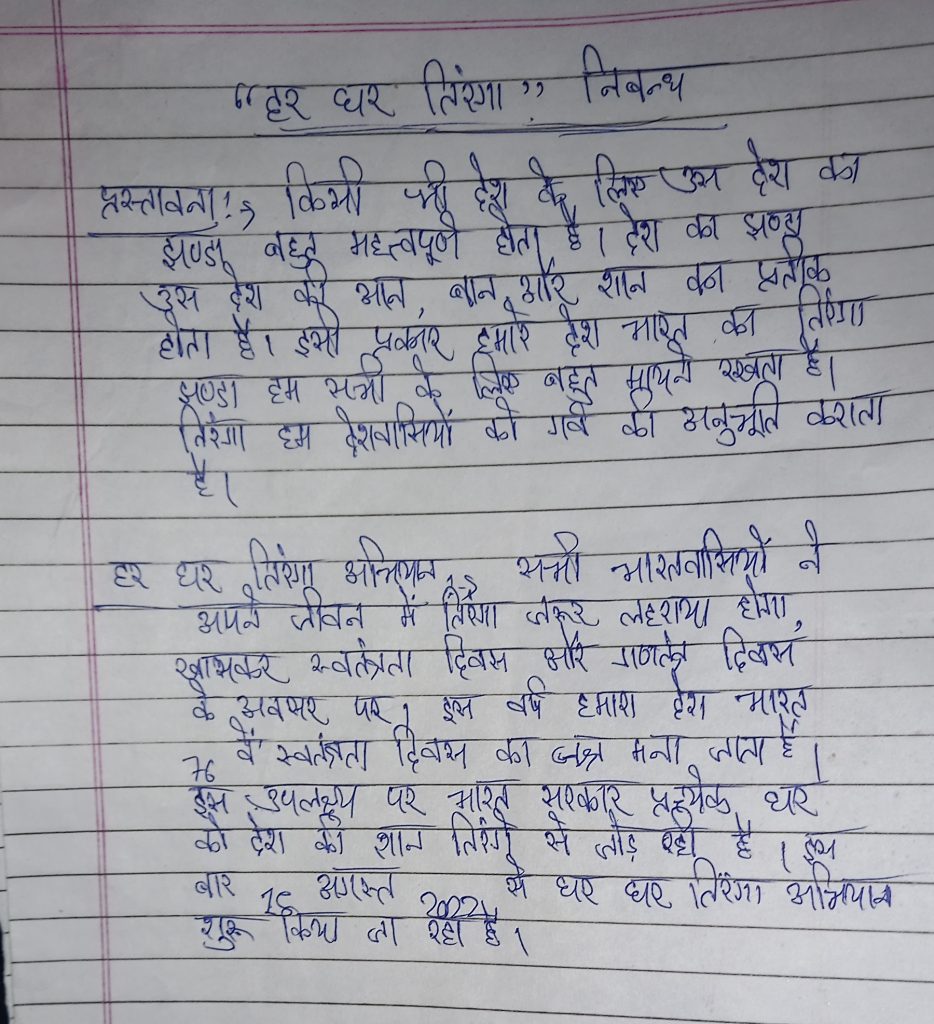 “हर घर तिरंगा” निबन्ध
प्रस्तावना:→ किसी भी देश के लिए उस देश का
झण्डा बहुत महत्त्वपूर्ण होता है। देश का झण्डा
उस देश की आन, बान और शान का प्रतीक
होता है। इसी प्रकार हमारे देश भारत का तिरंगा
झण्डा हम सभी के लिए बहुत मायने रखता है।
तिरंगा हम देशवासियों को गर्व की अनुभूति कराता
है।
हर घर तिरंगा अभियान:→ सभी भारतवासियों ने
अपने जीवन में तिरंगा जरूर लहराया होगा,
खासकर स्वतंत्रता दिवस और गणतंत्र दिवस
के अवसर पर। इस वर्ष हमारा देश भारत
76 वें स्वतंत्रता दिवस का जश्न मना जाता है।
इस उपलक्ष्य पर भारत सरकार प्रत्येक घर
को देश की शान तिरंगे से जोड़ रही है। इस
बार 15 अगस्त 2022 से घर घर तिरंगा अभियान
शुरू किया जा रहा है।